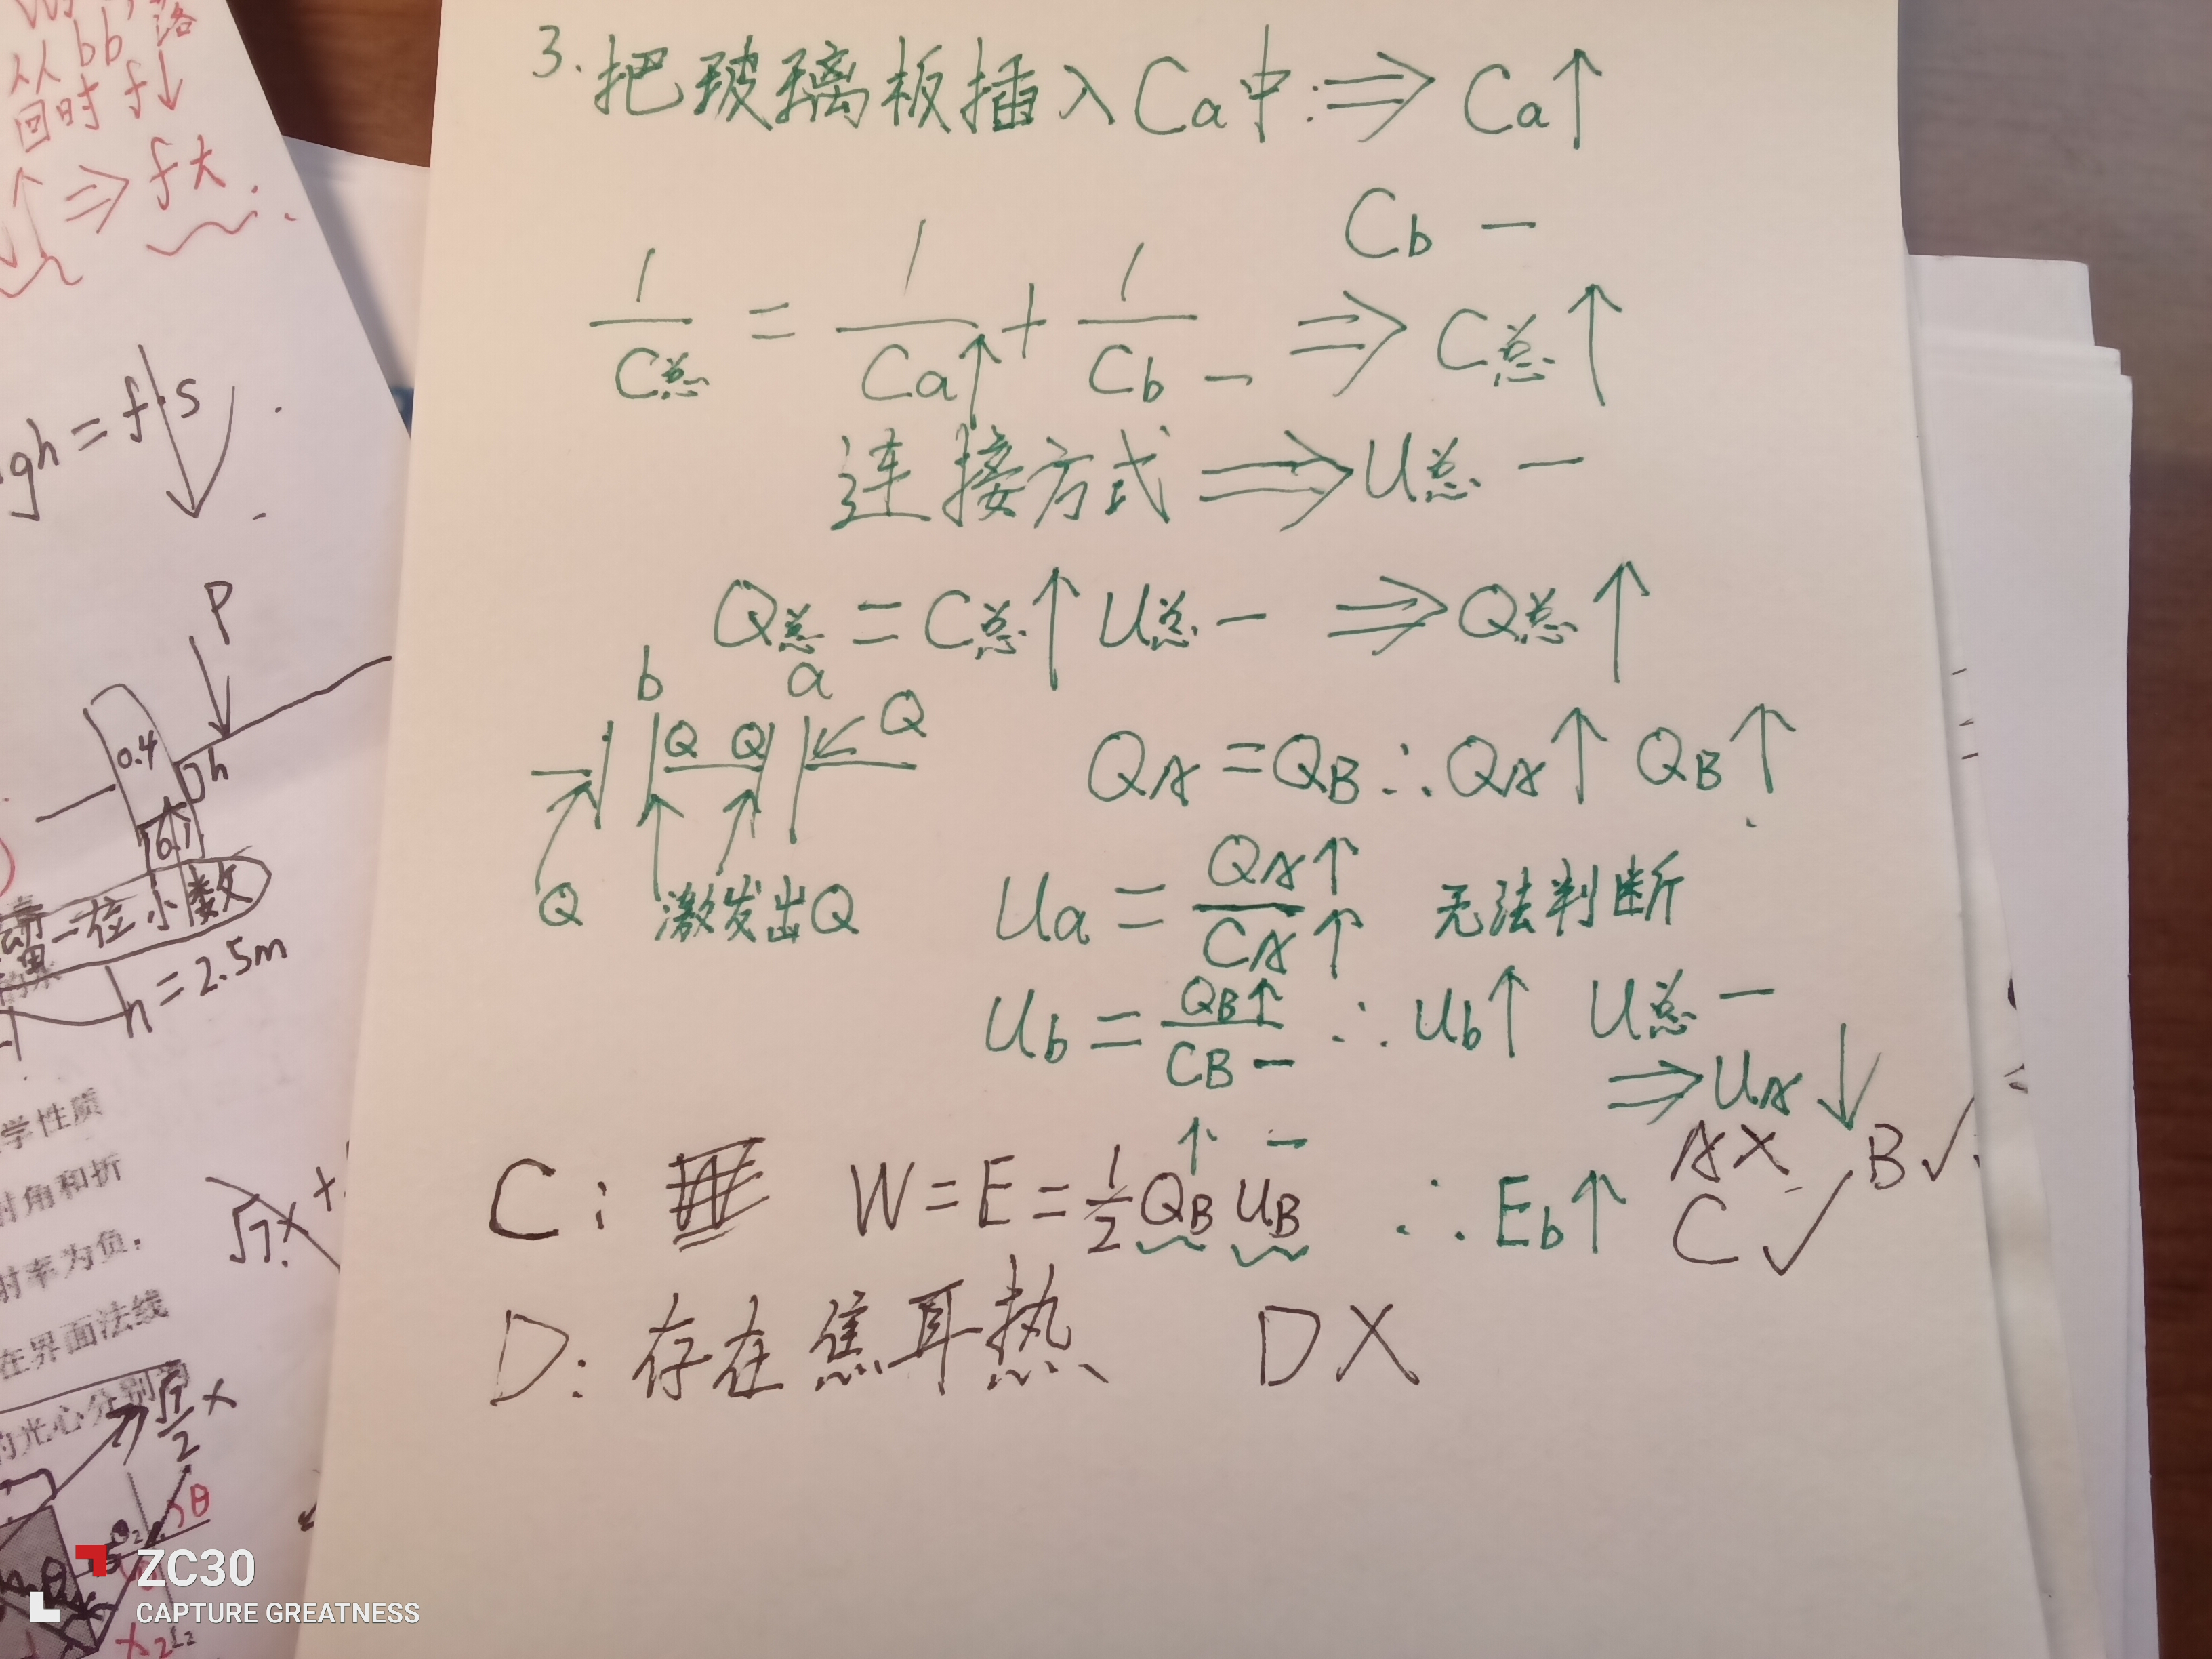 从bb'落
回时 f↓
⇒f大
3.把玻璃板插入Ca中:⇒Ca↑
Cb —
1/C总 = 1/Ca↑ + 1/Cb — ⇒ C总↑
连接方式⇒U总 —
Q总 = C总↑ U总 — ⇒ Q总↑
b a
Q Q Q
Q 激发出Q
QA = QB ∴ QA↑ QB↑
Ua = QA↑/CA↑ 无法判断
Ub = QB↑/CB — ∴ Ub↑ U总 —
⇒ UA↓
A× B✓
↑ —
C: W=E=1/2 QB UB ∴ Eb↑ C✓
D: 存在焦耳热 D×
gh = f·s
P
0.4
h
0.1
一位小数
h = 2.5m
学性质
射角和折
射率为负,
在界面法线
的光心分别
ZC30
CAPTURE GREATNESS